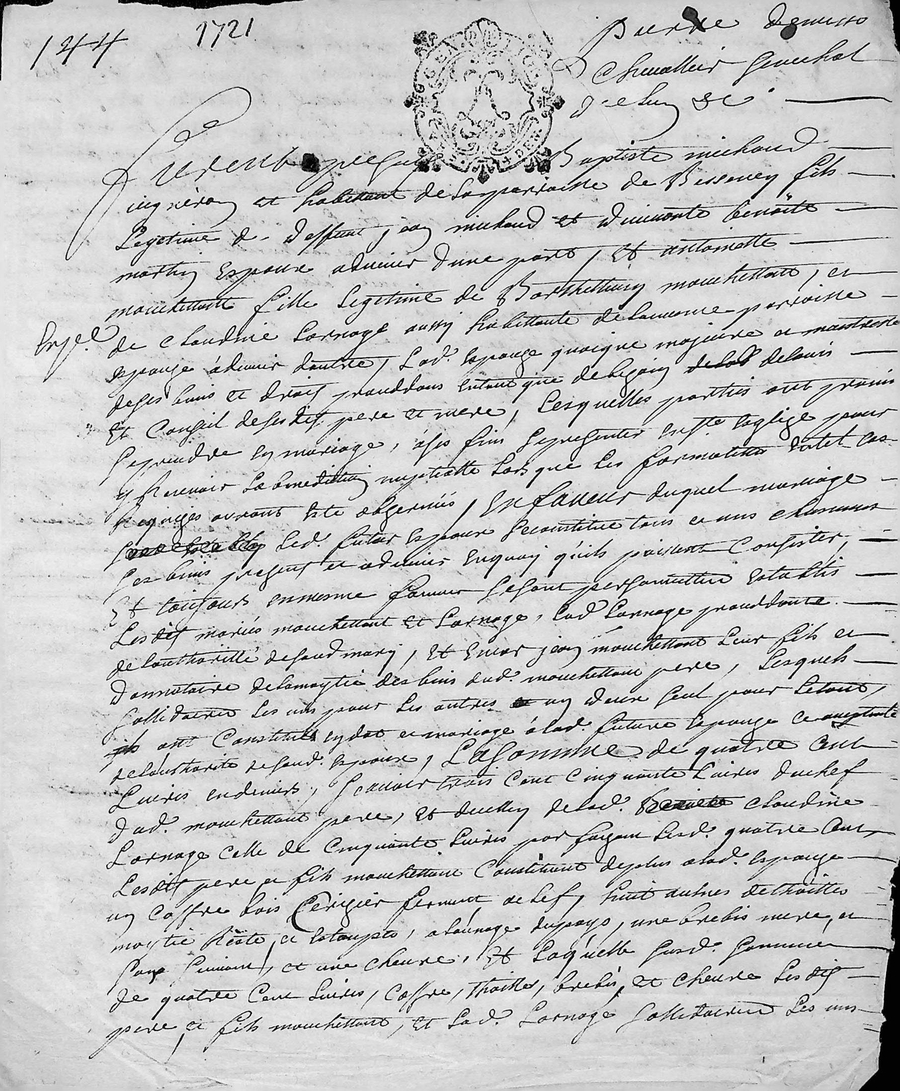 144 1721
Pierre
Chevallier Senechal
de Lyon &c
Furent Baptiste michaud
vigneron et habittant de la parroisse de Bessenay fils
Legitime de deffunt jean michaud et benoite
martin Espoux advenir d'une part, Et antoinette
mouchettant fille Legitime de Barthellemy mouchettant, et
de Claudine Lornage aussy habittante de la mesme parroisse
Espouse advenir d'autre, Lad. Espouze quoique majeure et maitresse
de ses biens et droits de l'avis
Et Conseil de sesdits pere et mere, Lesquelles parties ont promis
se prendre en mariage, a ses fins se presenter en ste Esglize pour
y Recevoir la benediction nuptialle Lorsque les formalites en tel cas
Requizes auront este observées, En faveur duquel mariage
Led. futur Espoux se constitue tous et uns chascuns
ses biens presens et advenir Enquoy qu'ils puissent Consister,
Et toujours en mesme faveur se sont personnellement establis
Lesdits mariés mouchettant et Lornage, lad. Lornage
de l'authorité de son d. mary, Et Encor jean mouchettant Leur fils et
Donnataire de la moytié des biens dud. mouchettant pere, Lesquels
sollidairement Les uns pour les autres un d'eux seul pour le tout,
ont Constitué en dot et mariage a lad. future Espouze ce acceptante
de l'authorité de son d. Espoux, La somme de quatre Cent
Livres en deniers, sçavoir trois Cent Cinquante Livres du chef
dud. mouchettant pere, et du chef de lad. Claudine
Lornage celle de Cinquante Livres
Lesdits pere et fils mouchettant Constituent de plus a lad. Espouze
un Coffre bois Cerizier fermant de clef, huit aulnes de thoilles
moytié Ritte et estoupes, a l'aunage du pays, une brebis mere, et
son suivant, et une chevre, Et laquelle susd. somme
de quatre Cent Livres, Coffre, thoilles, brebis, et chevre Lesdits
pere et fils mouchettant, et Lad. Lornage sollidairement Les uns